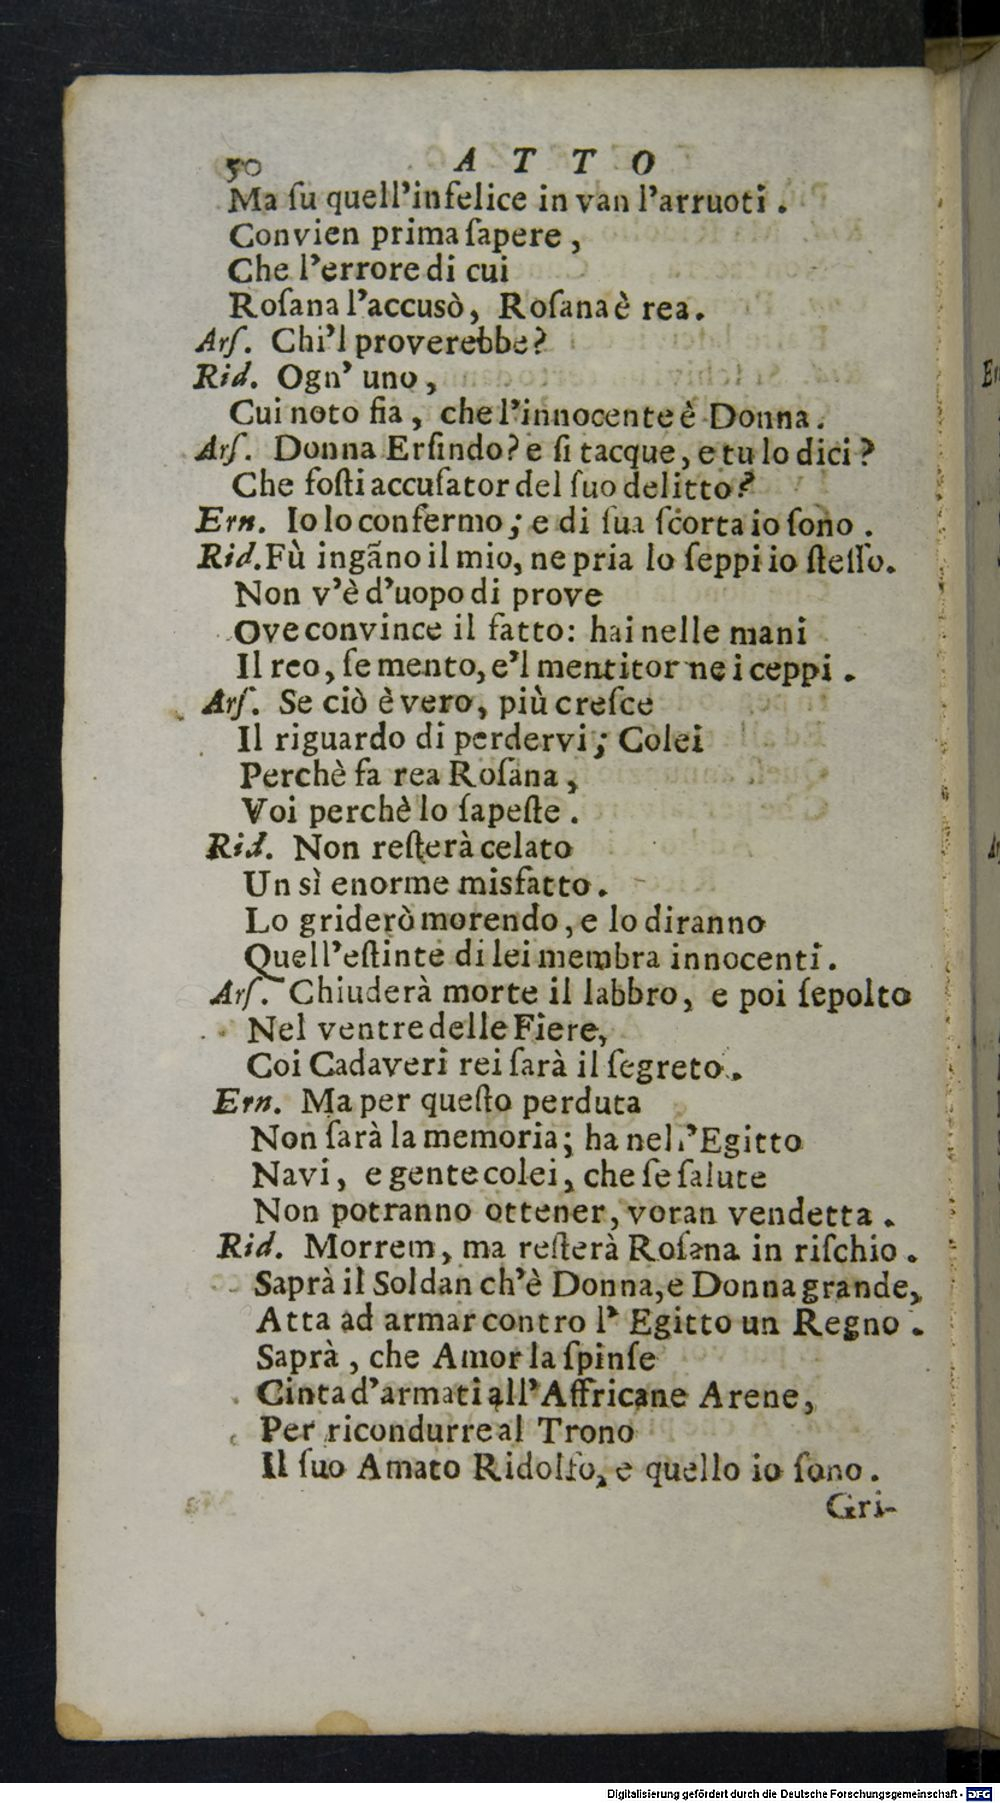 50 ATTO
Ma ſu quell'infelice in van l'arruoti.
Convien prima ſapere,
Che l'errore di cui
Roſana l'accusò, Roſana è rea.
Arſ. Chi'l proverebbe?
Rid. Ogn' uno,
Cui noto fia, che l'innocente è Donna.
Arſ. Donna Erſindo? e ſi tacque, e tu lo dici?
Che foſti accuſator del ſuo delitto?
Ern. Io lo confermo; e di ſua ſcorta io ſono.
Rid. Fù ingãno il mio, ne pria lo ſeppi io ſteſſo.
Non v'è d'uopo di prove
Ove convince il fatto: hai nelle mani
Il reo, ſe mento, e'l mentitor ne i ceppi.
Arſ. Se ciò è vero, più creſce
Il riguardo di perdervi; Colei
Perchè fa rea Roſana,
Voi perchè lo ſapeſte.
Rid. Non reſterà celato
Un sì enorme misfatto.
Lo griderò morendo, e lo diranno
Quell'eſtinte di lei membra innocenti.
Arſ. Chiuderà morte il labbro, e poi ſepolto
Nel ventre delle Fiere,
Coi Cadaveri rei ſarà il ſegreto.
Ern. Ma per queſto perduta
Non ſarà la memoria; ha nell'Egitto
Navi, e gente colei, che ſe ſalute
Non potranno ottener, voran vendetta.
Rid. Morrem, ma reſterà Roſana in riſchio.
Saprà il Soldan ch'è Donna, e Donna grande,
Atta ad armar contro l' Egitto un Regno.
Saprà, che Amor la ſpinſe
Cinta d'armati all'Affricane Arene,
Per ricondurre al Trono
Il ſuo Amato Ridolfo, e quello io ſono.
Gri-
Digitalisierung gefördert durch die Deutsche Forschungsgemeinschaft - DFG